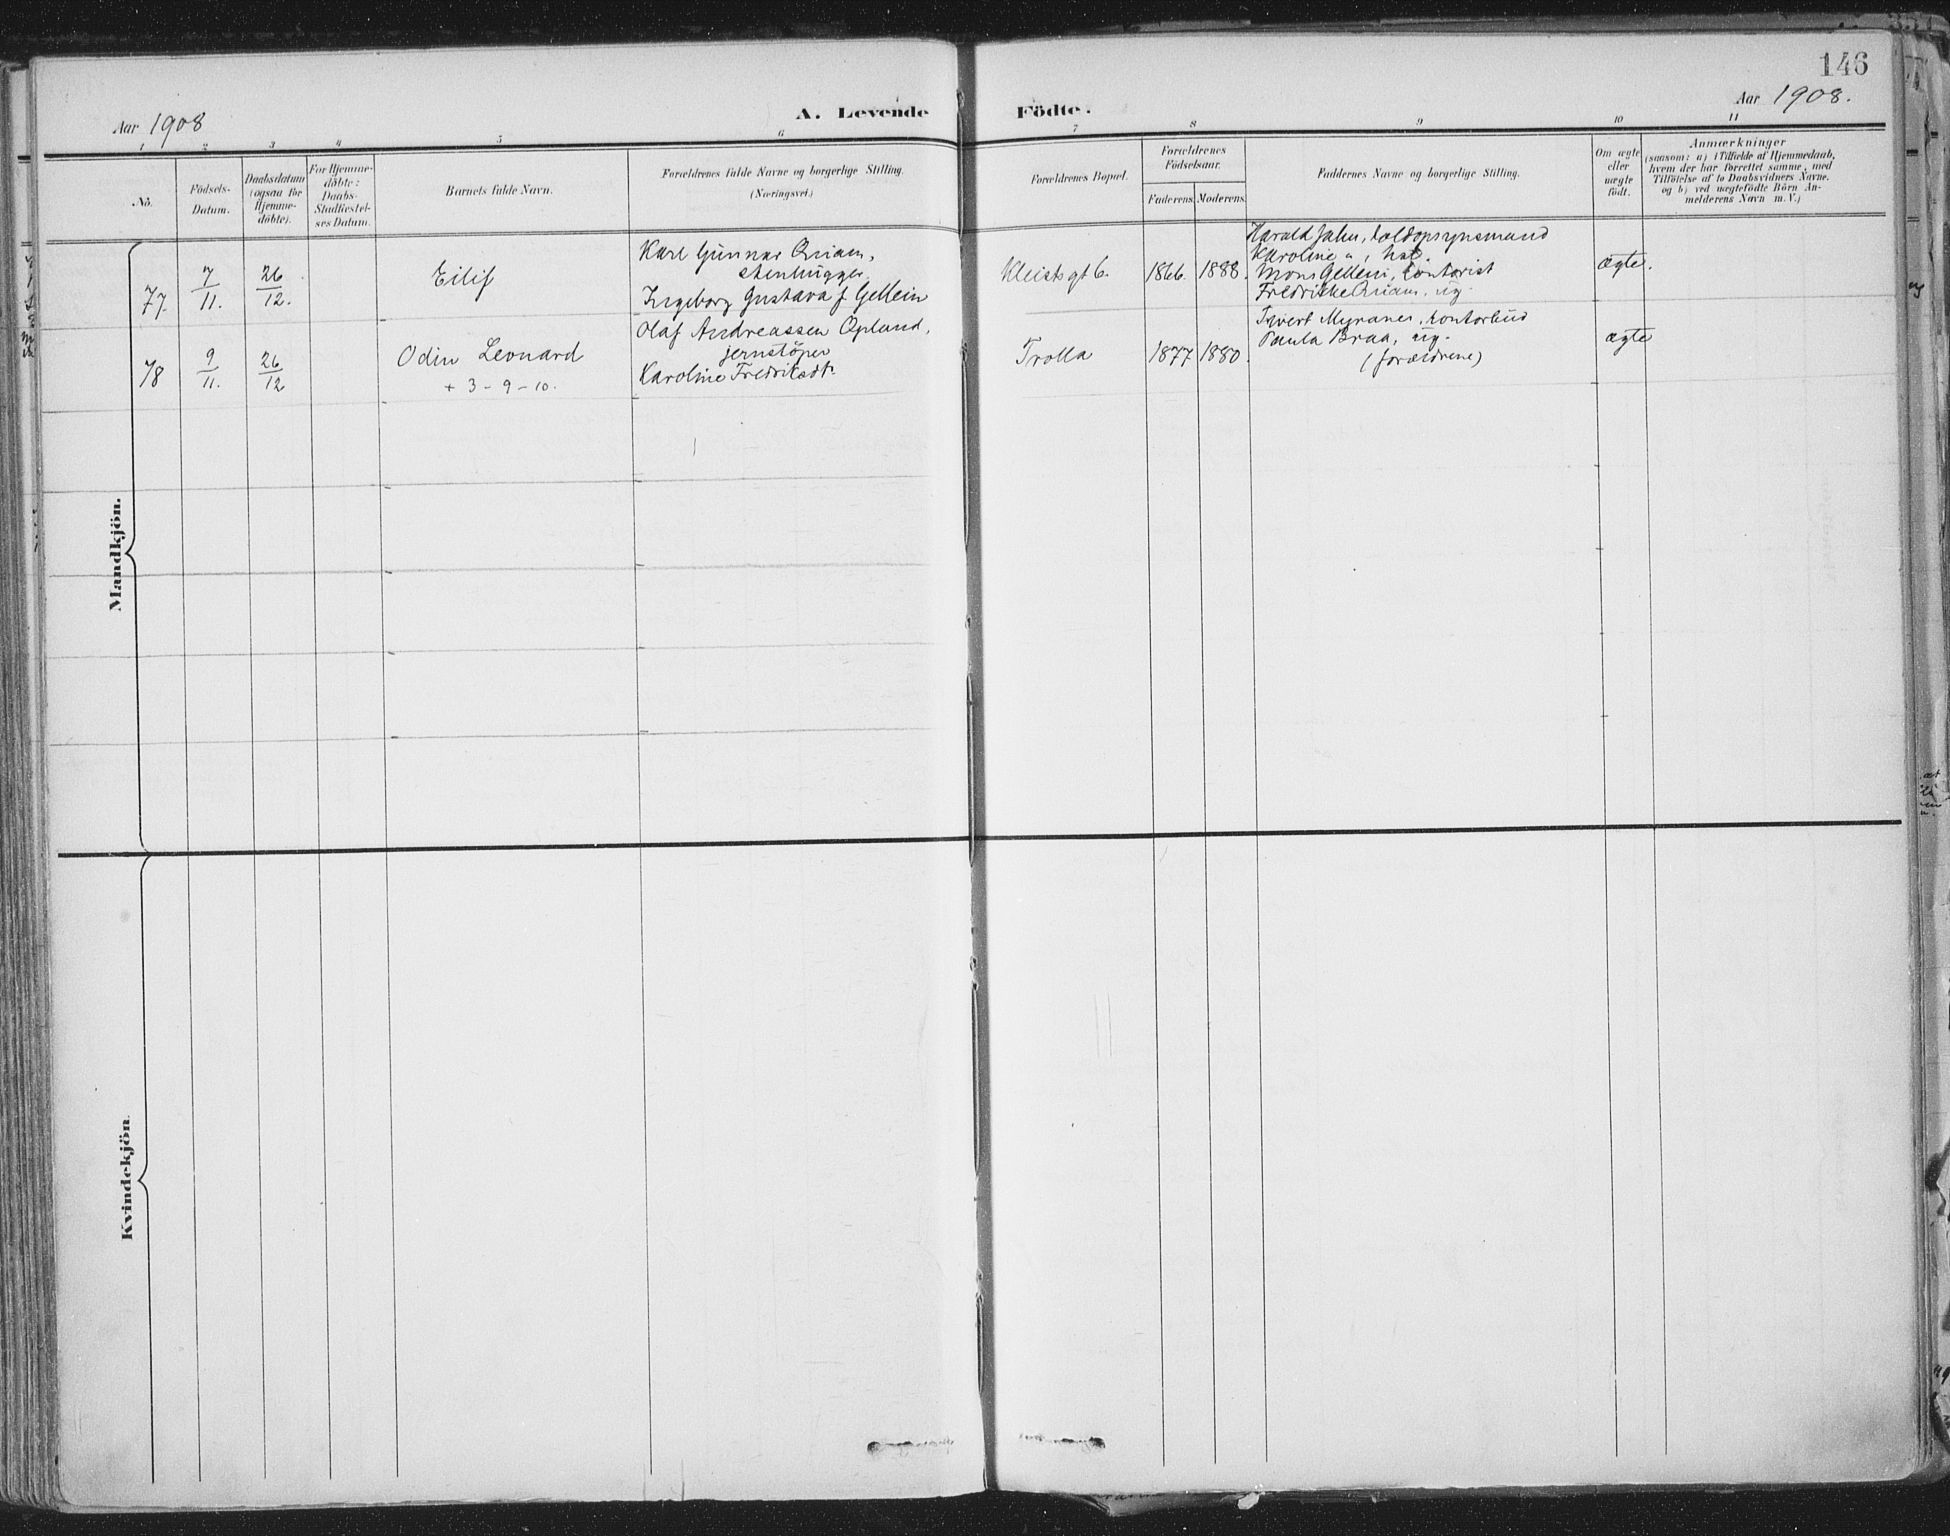 146
Aar 1908
A. Levende Födte.
Aar 1908.
1 2 3 4 5 6 7 8 9 10 11
No.
Födsels-
Datum.
Daabsdatum
(ogsaa for
Hjemme-
döbte).
For Hjemme-
döbte:
Daabs-
Stadfæstel-
ses Datum.
Barnets fulde Navn.
Forældrenes fulde Navne og borgerlige Stilling.
(Næringsvei.)
Forældrenes Bopæl.
Forældrenes
Födselsaar.
Faderens. Moderens.
Faddernes Navne og borgerlige Stilling.
Om ægte
eller
uægte
födt.
Anmærkninger
(saasom: a) i Tilfælde af Hjemmedaab,
hvem der har forrettet samme, med
Tilföielse af to Daabsvidners Navne.
og b) ved uægtefödte Börn An-
melderens Navn m. V.)
Mandkjön.
77. 7/11. 26/12. Eilif
Karl Gunnar Quiam,
stenhugger
Ingeborg Gustava f Gellein
Kleistsgt 6. 1866. 1888.
Harald Jahn, toldopsynsmand
Karoline " , hst.
Mons Gellein, kontorist
Fredrikke Quiam, ug.
ægte.
78 9/11. 26/12 Odin Leonard
+ 3-9-10.
Olaf Andreassen Opland,
jernstöper
Karoline Fredriksdt.
Trolla 1877 1880.
Myraner, kontorbud
Paula Braa, ug.
(forældrene)
ægte
Kvindekjön.